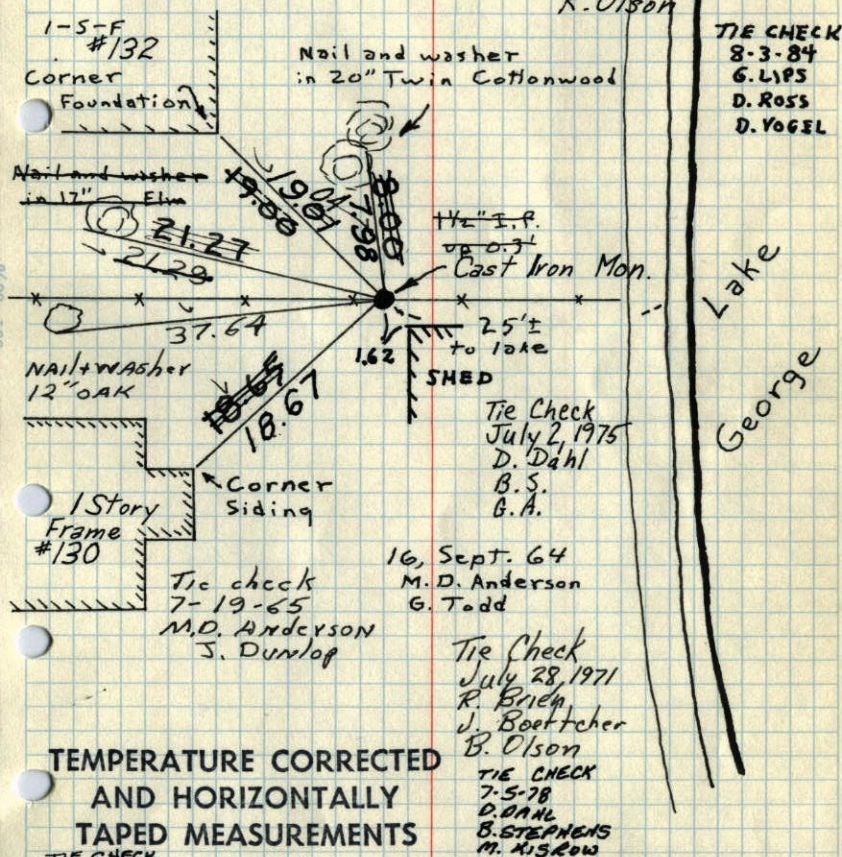 R. Olson
TIE CHECK
8-3-84
G. LIPS
D. ROSS
D. VOGEL
1-S-F
#132
Corner
Foundation
Nail and washer
in 20" Twin Cottonwood
Nail and washer
in 12" Elm
19.00
19.01
.04
7.98
8.00
21.27
21.29
1½" I.P.
up 0.3'
Cast Iron Mon.
37.64
1.62
25'±
to lake
SHED
Lake
George
NAIL+WASHER
12" OAK
18.67
18.67
Corner
Siding
1 Story
Frame
#130
Tie Check
July 2, 1975
D. Dahl
B.S.
G.A.
16, Sept. 64
M. D. Anderson
G. Todd
Tie check
7-19-65
M.D. Anderson
J. Dunlop
Tie Check
July 28, 1971
R. Brien
J. Boettcher
B. Olson
TIE CHECK
7-5-78
D. DAHL
B. STEPHENS
M. KISROW
TEMPERATURE CORRECTED
AND HORIZONTALLY
TAPED MEASUREMENTS
TIE CHECK